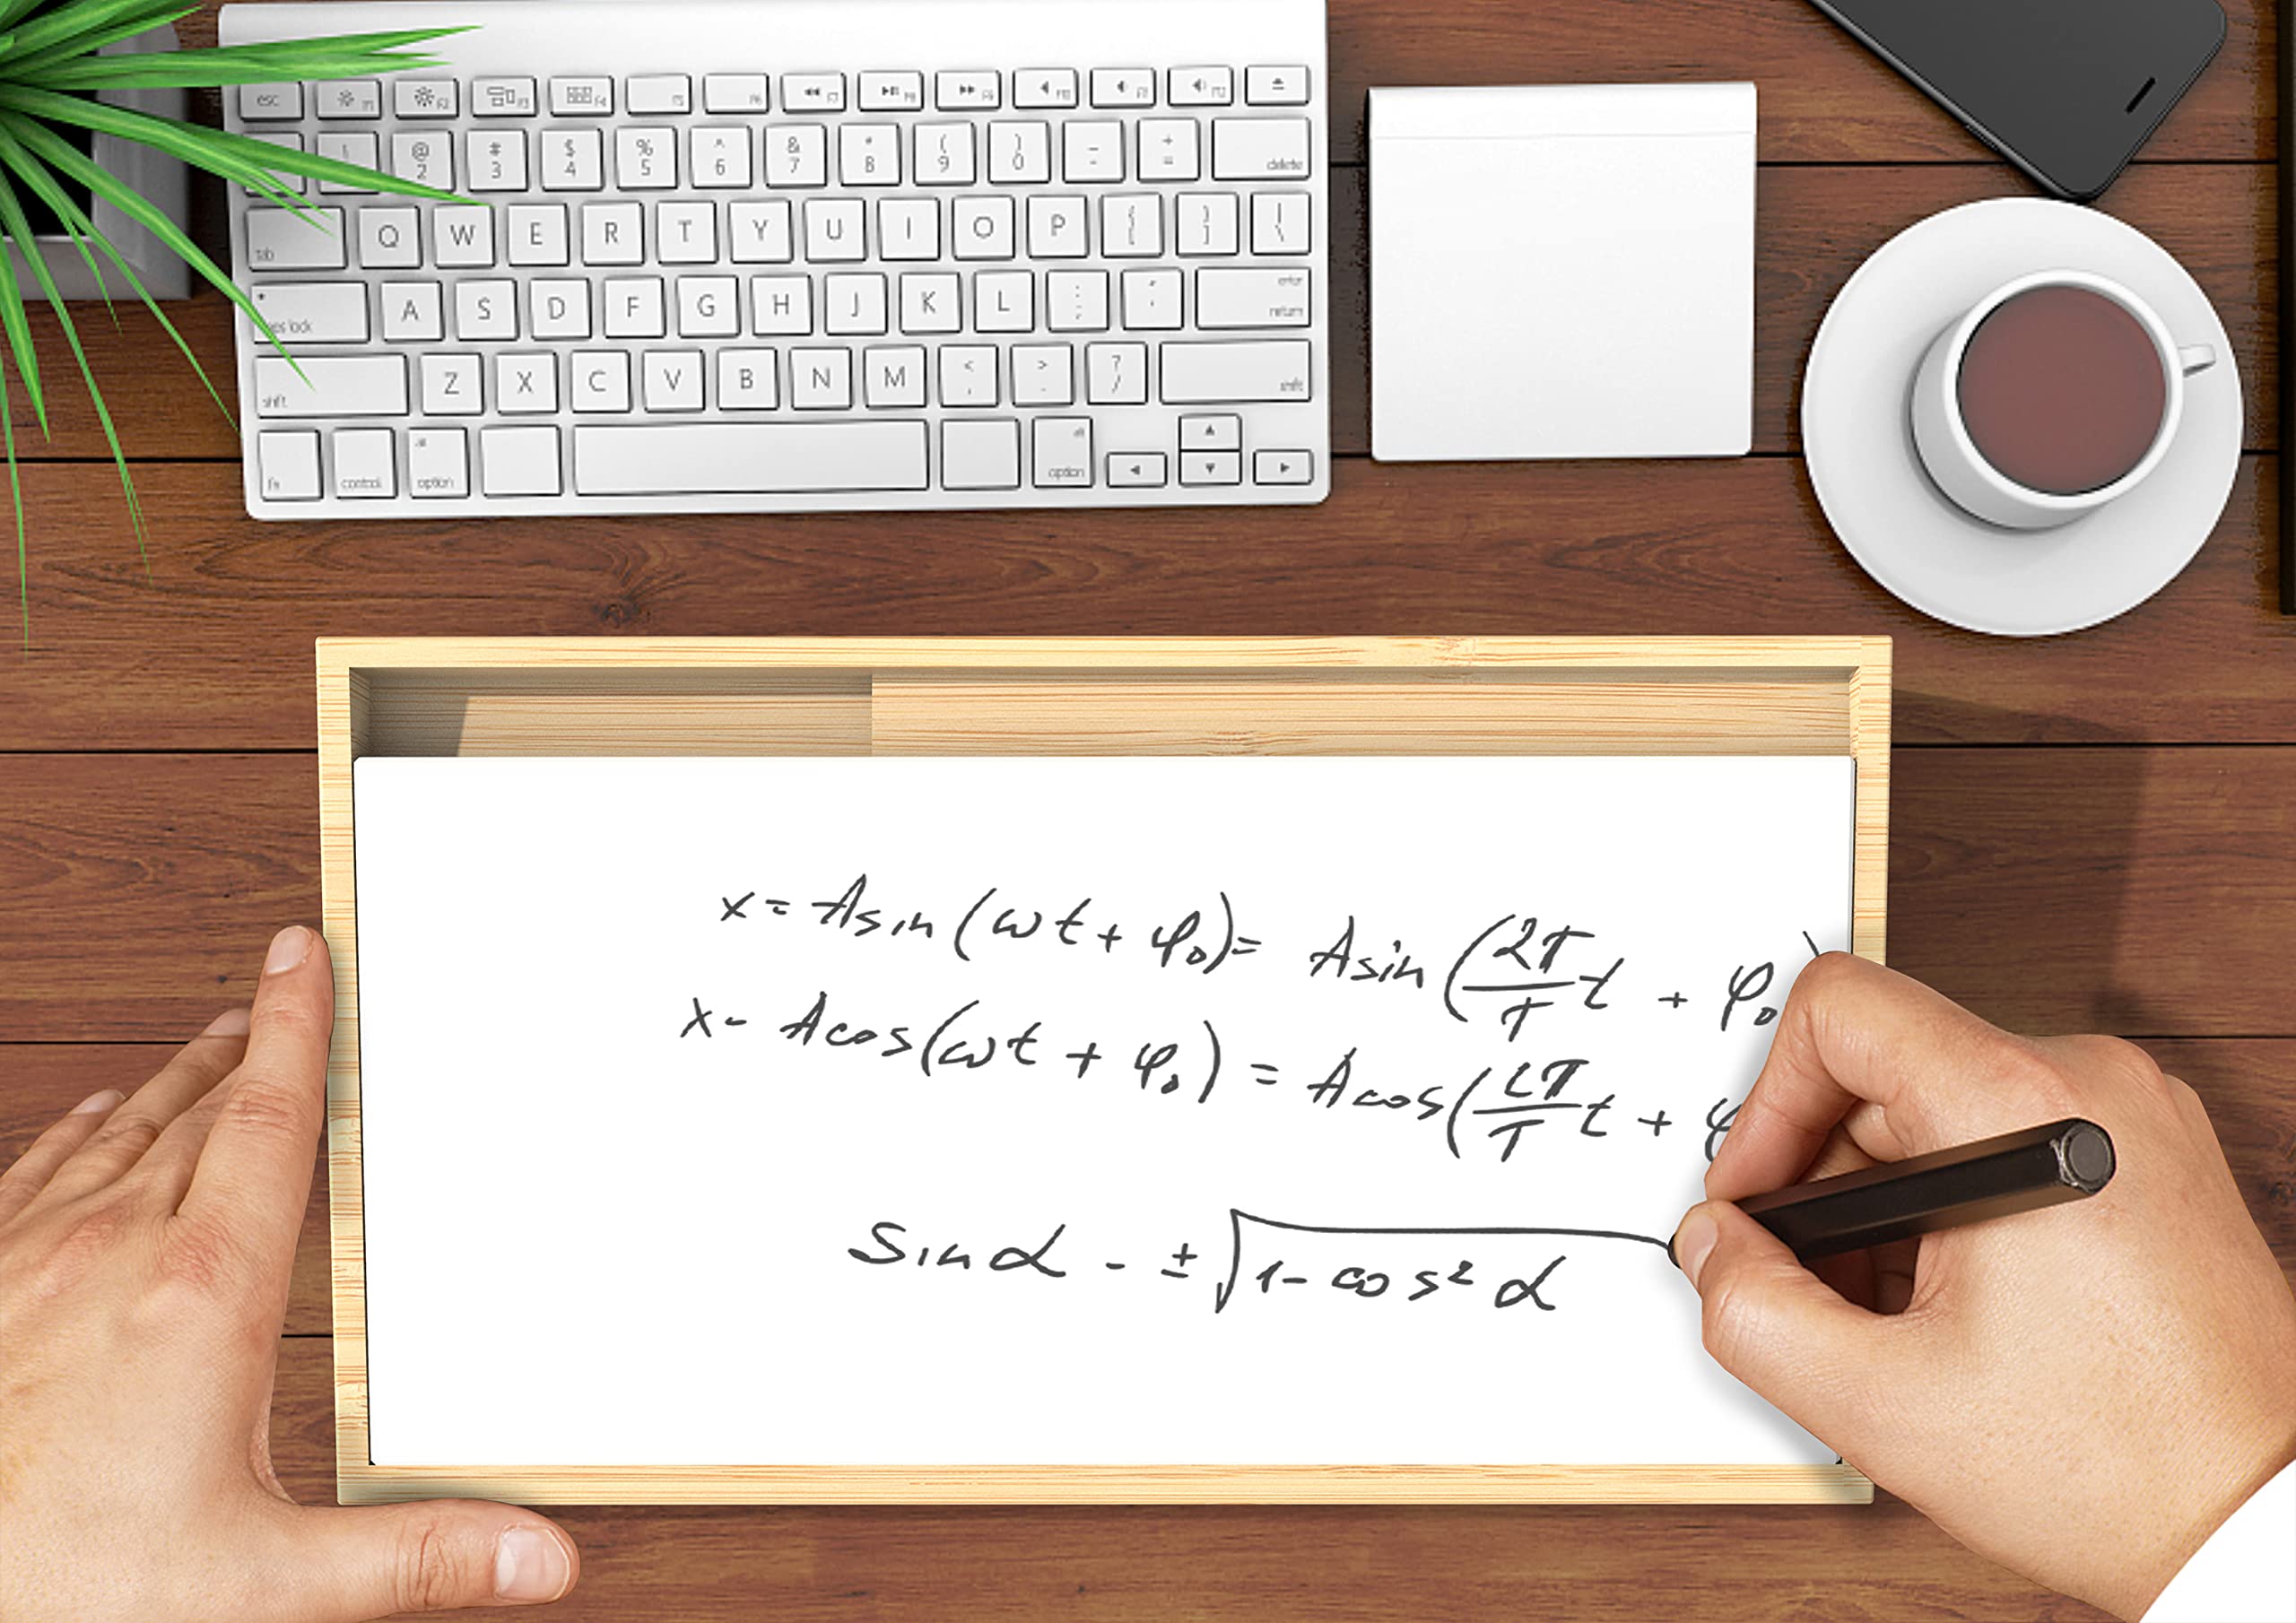 esc F1 F2 F3 F4 F5 F6 F7 F8 F9 F10 F11 F12
! @ 2 # 3 $ 4 % 5 ^ 6 & 7 * 8 ( 9 ) 0 _ - + = delete
tab Q W E R T Y U I O P { [ } ] | \
A S D F G H J K L : ; " ' enter return
shift Z X C V B N M < , > . ? / shift
fn control alt option alt option
x = A sin (ωt + φ₀) = A sin (2π/T t + φ₀)
x - A cos (ωt + φ₀) = A cos (2π/T t + φ
Sin α - ± √1 - cos² α